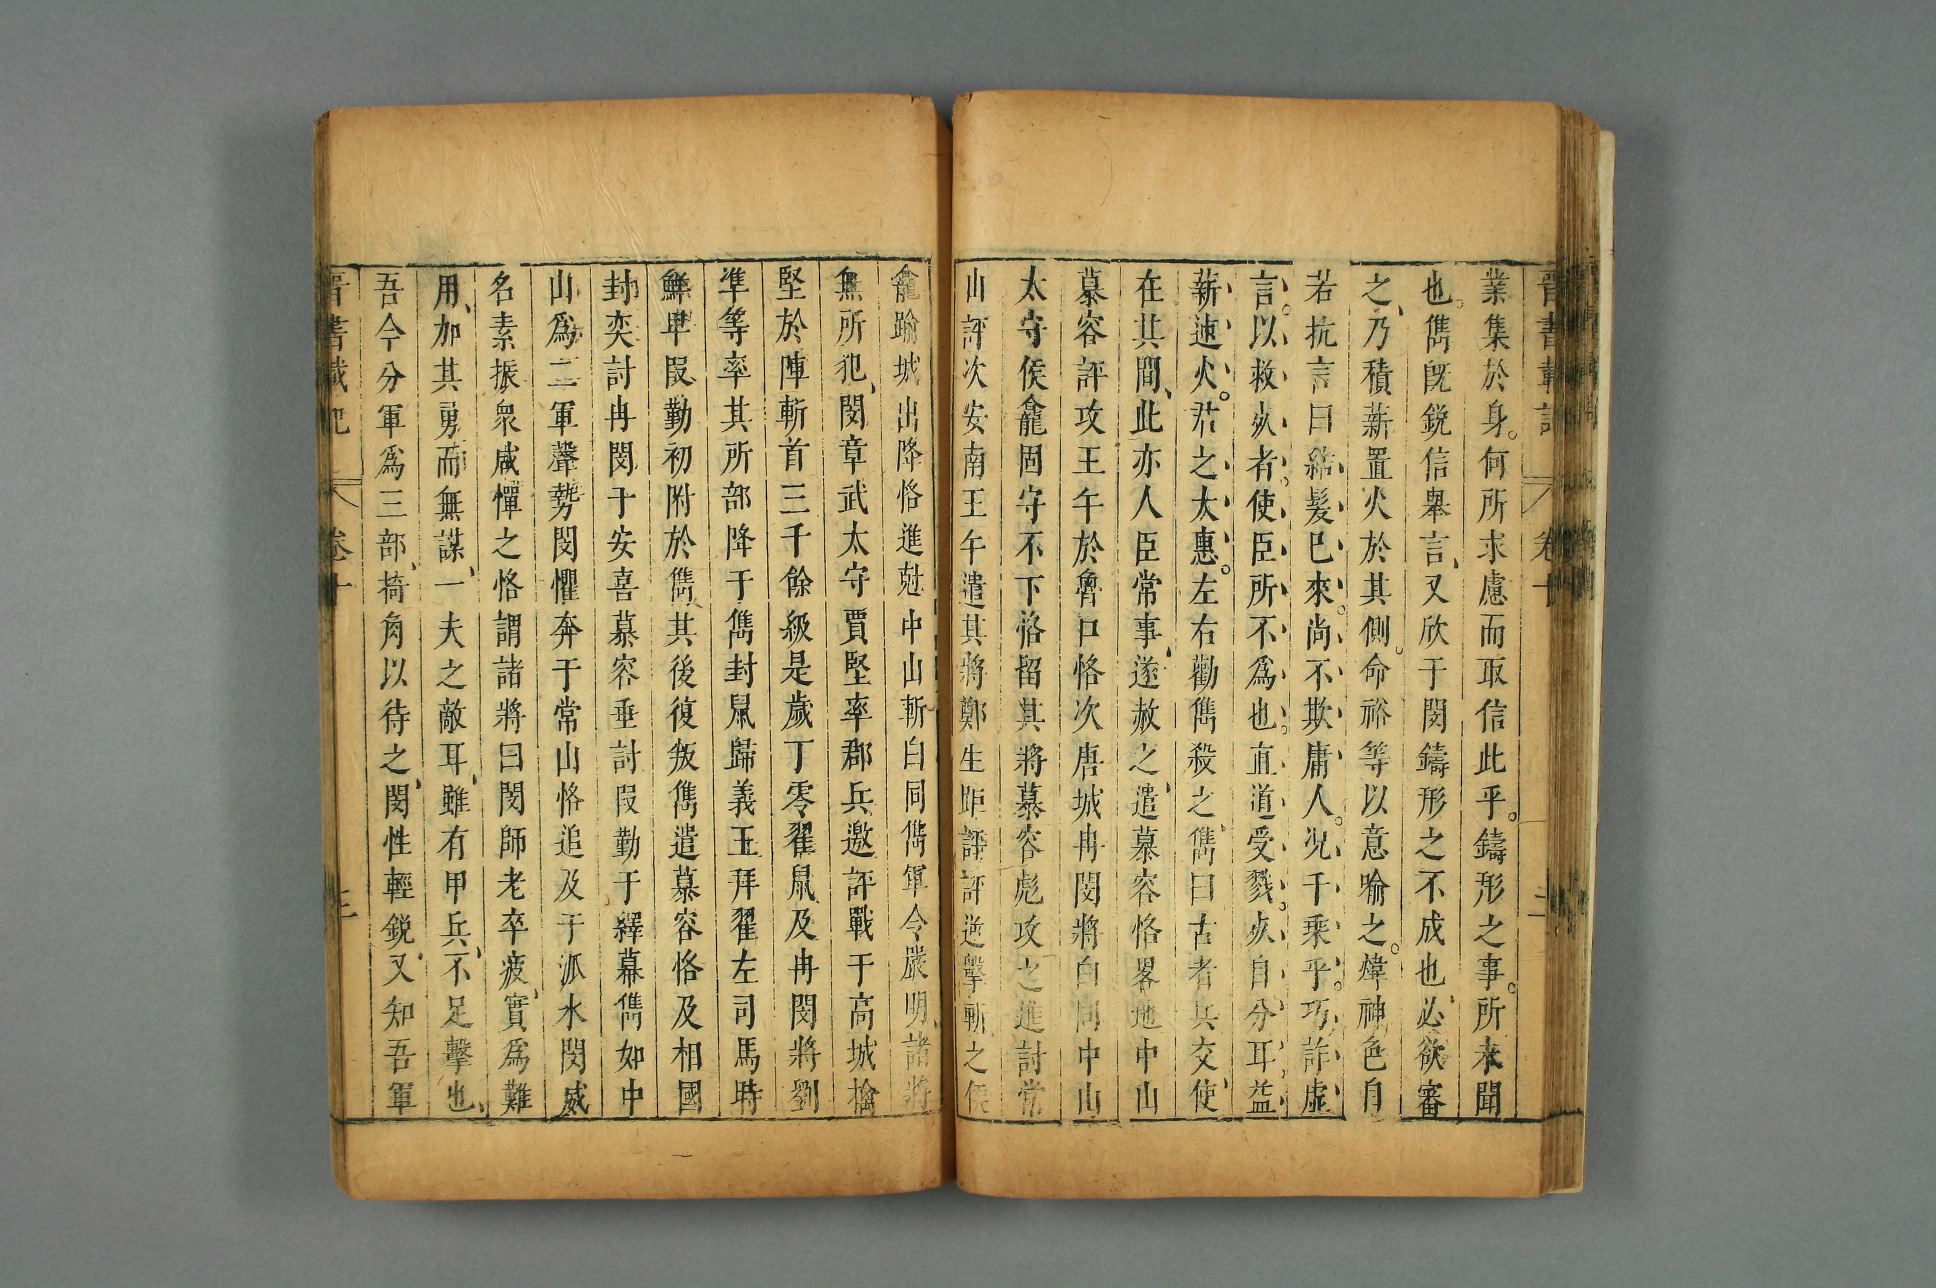 晉書載記 卷十 二
業集於身何所求慮而取信此乎鑄形之事所未聞
也儁旣銳信舉言又欣于閔鑄形之不成也必欲審
之乃積薪置火於其側命裕等以意喻之煒神色自
若抗言曰結髮已來尚不欺庸人况千乘乎巧詐虛
言以救死者使臣所不爲也直道受戮死自分耳益
薪速火君之大惠左右勸儁殺之儁曰古者兵交使
在其間此亦人臣常事遂赦之遣慕容恪畧地中山
慕容評攻王午於魯口恪次唐城冉閔將白同中山
太守侯龕固守不下恪留其將慕容彪攻之進討常
山評次安南王午遣其將鄭生距評評逆擊斬之侯
龕踰城出降恪進尅中山斬白同儁軍令嚴明諸將
無所犯閔章武太守賈堅率郡兵邀評戰于高城擒
堅於陣斬首三千餘級是歲丁零翟鼠及冉閔將劉
準等率其所部降于儁封鼠歸義王拜翟左司馬時
鮮卑段勤初附於儁其後復叛儁遣慕容恪及相國
封奕討冉閔于安喜慕容垂討段勤于繹幕儁如中
山爲二軍聲勢閔懼奔于常山恪追及于泒水閔威
名素振衆咸憚之恪謂諸將曰閔師老卒疲實爲難
用加其勇而無謀一夫之敵耳雖有甲兵不足擊也
吾今分軍爲三部掎角以待之閔性輕銳又知吾軍
晉書載記 卷十